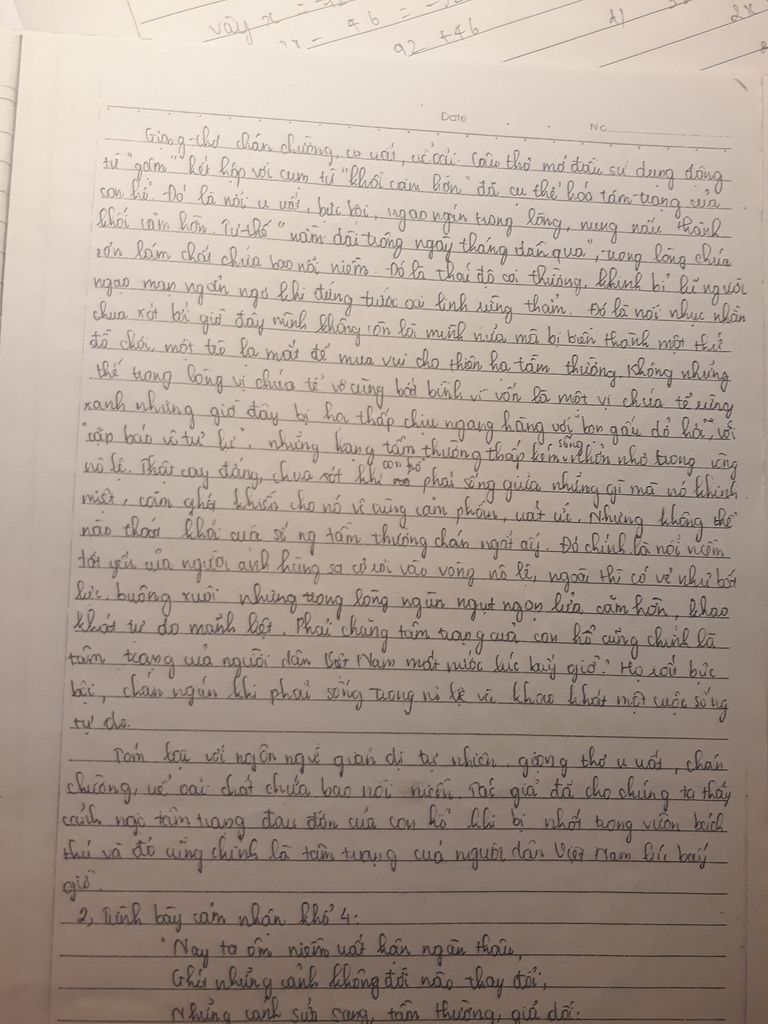 vậy x =
2x - 4b =
92 + 4b
d)
2x
Date No
Giọng thơ chán chường, u uất, uể oải. Câu thơ mở đầu sử dụng động
từ "gậm" kết hợp với cụm từ "khối căm hờn" đã cụ thể hóa tâm trạng của
con hổ. Đó là nỗi u uất, bực bội, ngao ngán trong lòng, nung nấu thành
khối căm hờn. Tư thế "nằm dài trông ngày tháng dần qua", trong lòng chúa
sơn lâm chất chứa bao nỗi niềm. Đó là thái độ coi thường, khinh bỉ lũ người
ngạo mạn ngẩn ngơ khi đứng trước oai linh rừng thẳm. Đó là nỗi nhục nhằn
chua xót bởi giờ đây mình không còn là mình nữa mà bị biến thành một thứ
đồ chơi, một trò lạ mắt để mua vui cho thiên hạ tầm thường. Không những
thế trong lòng vị chúa tể vô cùng bất bình vì vốn là một vị chúa tể rừng
xanh nhưng giờ đây bị hạ thấp chịu ngang hàng với "bọn gấu dở hơi", với
"cặp báo vô tư lự", những hạng tầm thường thấp kém, sống nhỏ trong vòng
nô lệ. Thật cay đắng, chua xót khi con hổ phải sống giữa những gì mà nó khinh
miệt, căm ghét khiến cho nó vô cùng căm phẫn, uất ức. Nhưng không thể
nào thoát khỏi cuả số ng tầm thường chán ngắt ấy. Đó chính là nỗi niềm
tất yếu của người anh hùng sa cơ rơi vào vòng nô lệ, ngoài thì có vẻ như bất
lực buông xuôi nhưng trong lòng ngùn ngụt ngọn lửa căm hờn, khao
khát tự do mãnh liệt. Phải chăng tâm trạng của con hổ cũng chính là
tâm trạng của người dân Việt Nam mất nước lúc bấy giờ? Họ rất bực
bội, chán ngán khi phải sống trong nô lệ và khao khát một cuộc sống
tự do.
Tóm lại với ngôn ngữ giản dị tự nhiên, giọng thơ u uất, chán
chường, uể oải chất chứa bao nỗi niềm. Tác giả đã cho chúng ta thấy
cảnh ngộ tâm trạng đau đớn của con hổ khi bị nhốt trong vườn bách
thú và đó cũng chính là tâm trạng của người dân Việt Nam lúc bấy
giờ.
2, Trình bày cảm nhận khổ 4:
"Nay ta ôm niềm uất hận ngàn thâu,
Ghét những cảnh không đời nào thay đổi,
Những cảnh sửa sang, tầm thường, giả dối: